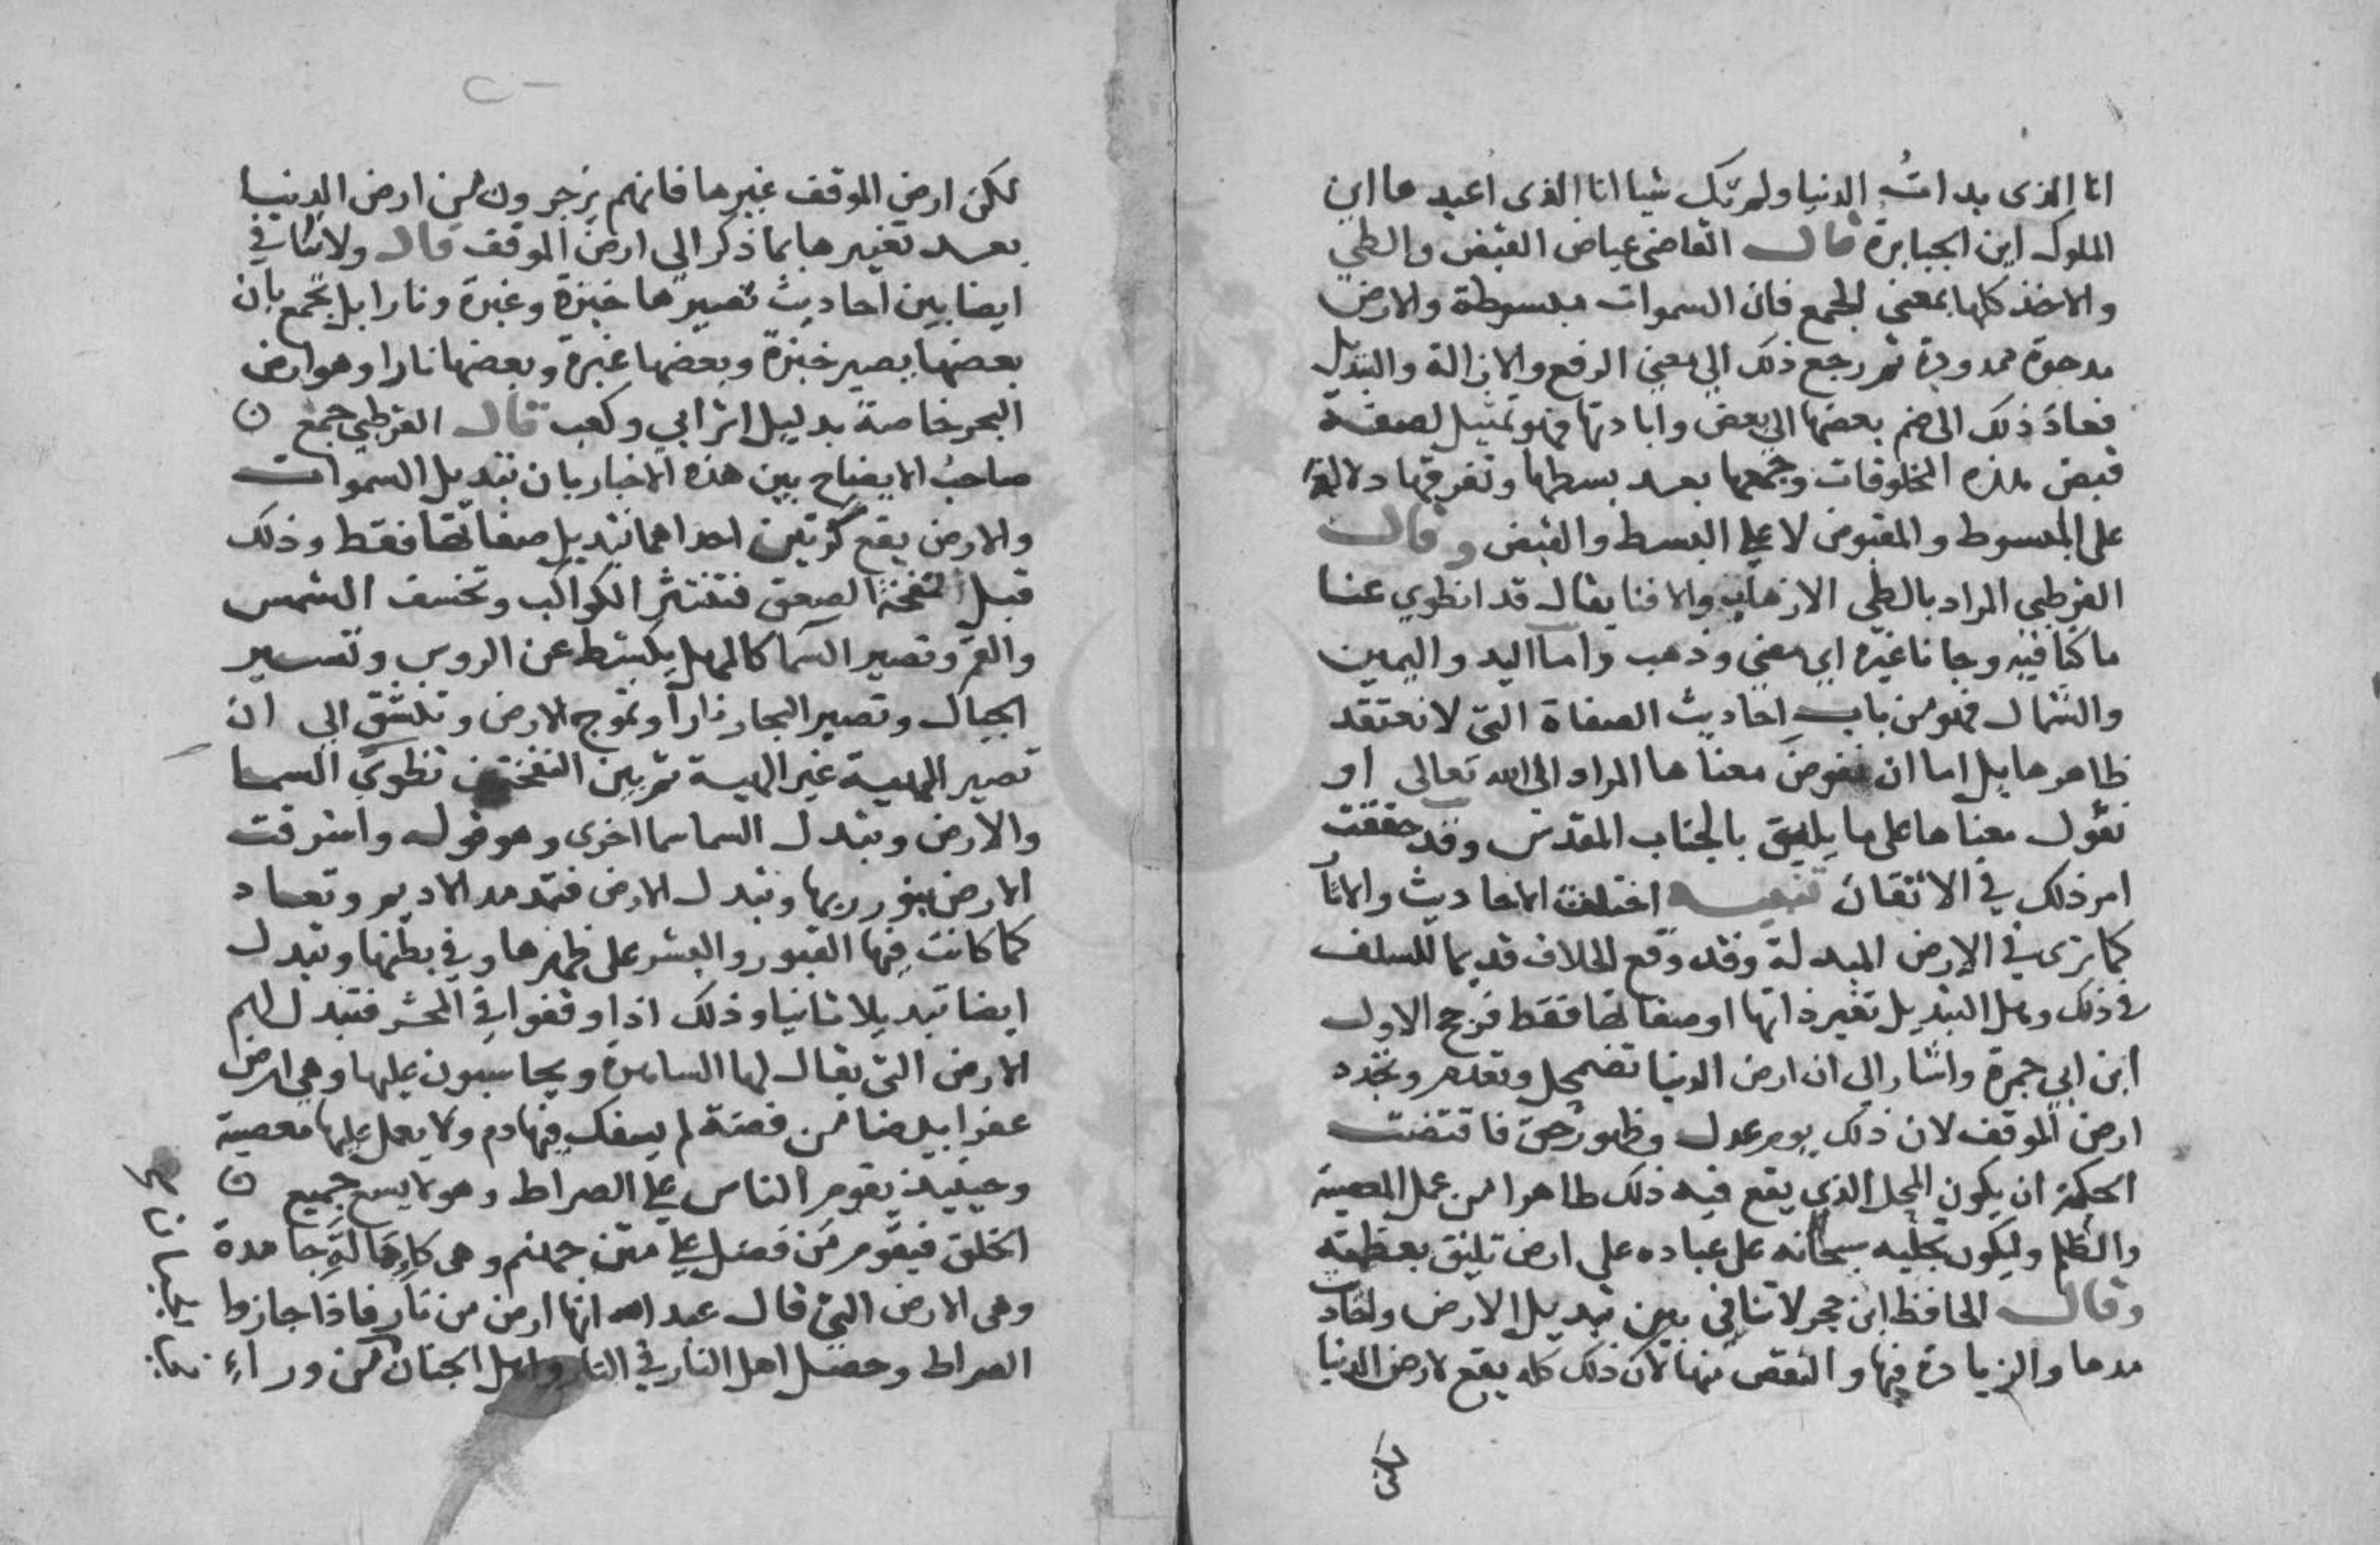 انا الذى بدات الدنيا ولم تك شيا انا الذى اعيدها اين
الملوك اين الجبابرة قال القاضى عياض القبض والطي
والاخذ كلها بمعنى الجمع فان السموات مبسوطة والارض
مدحوة ممدودة ثم رجع ذلك الي معني الرفع والازالة والتبديل
فعاد ذلك الى ضم بعضها الي بعض وابادتها فهو تمثيل لصفة
قبض هذه المخلوقات وجمعها بعد بسطها وتفرقها دلالة
على المبسوط والمقبوض لا على البسط والقبض وقال
القرطبي المراد بالطي الاذهاب والافنا يقال قد انطوي عنا
ما كنا فيه وجانا غيره اي مضي وذهب واما اليد واليمين
والشمال فهو من باب احاديث الصفاة التي لا نعتقد
ظاهرها بل اما ان نفوض معناها المراد الى الله تعالى او
نؤول معناها على ما يليق بالجناب المقدس وقد حققت
امر ذلك في الاتقان تنبيه اختلفت الاحاديث والاثار
كما ترى في الارض المبدلة وقد وقع الخلاف قديما للسلف
في ذلك وهل التبديل تغير ذاتها او صفاتها فقط فرجح الاول
ابن ابي جمرة واشار الي ان ارض الدنيا تضمحل وتعدم وتجدد
ارض الموقف لان ذلك يوم عدل وظهور حق فاقتضت
الحكمة ان يكون المحل الذي يقع فيه ذلك طاهرا من عمل المعصية
والظلم وليكون تجليه سبحانه على عباده علي ارض تليق بعظمته
وقال الحافظ ابن حجر لا تنافي بين تبديل الارض واحاديث
مدها والزيادة فيها والنقص منها لان ذلك كله يقع لارض الدنيا
لكن
لكن ارض الموقف غيرها فانهم يزجرون من ارض الدنيا
بعد تغييرها بما ذكر الي ارض الموقف قال ولا تنافي
ايضا بين احاديث تصييرها خبزة وغبرة ونارا بل يجمع بان
بعضها يصير خبزة وبعضها غبرة وبعضها نارا وهو ارض
البحر خاصة بدليل اثر ابي وكعب قال القرطبي جمع
صاحب الايضاح بين هذه الاخبار بان تبديل السموات
والارض يقع كرتين احداهما تبديل صفاتها فقط وذلك
قبل نفخة الصعق فتنتثر الكواكب وتخسف الشمس
والقمر وتصير السما كالمهل يكشط عن الروس وتسير
الجبال وتصير البحار نارا وتموج الارض وتنشق الي ان
تصير الهيية غير الهيية ثم بين النفختين تطوي السما
والارض وتبدل السما سما اخرى وهو قوله واشرقت
الارض بنور ربها وتبدل الارض فتمد مد الاديم وتعاد
كما كانت فيها القبور والبشر على ظهرها وفي بطنها وتبدل
ايضا تبديلا ثانيا وذلك اذا وقفوا في المحشر فتبدل لهم
الارض التي يقال لها الساهرة ويحاسبون عليها وهي ارض
عفرا بيضا من فضة لم يسفك فيها دم ولا يعمل عليها معصية
وحينيذ يقوم الناس على الصراط وهو لا يسع جميع
الخلق فيقوم من فضل على متن جهنم وهى كاهالة جامدة
وهى الارض التي قال عبد الله انها ارض من نار فاذا جازوا
الصراط وحصل اهل النار في النار واهل الجنان من وراء